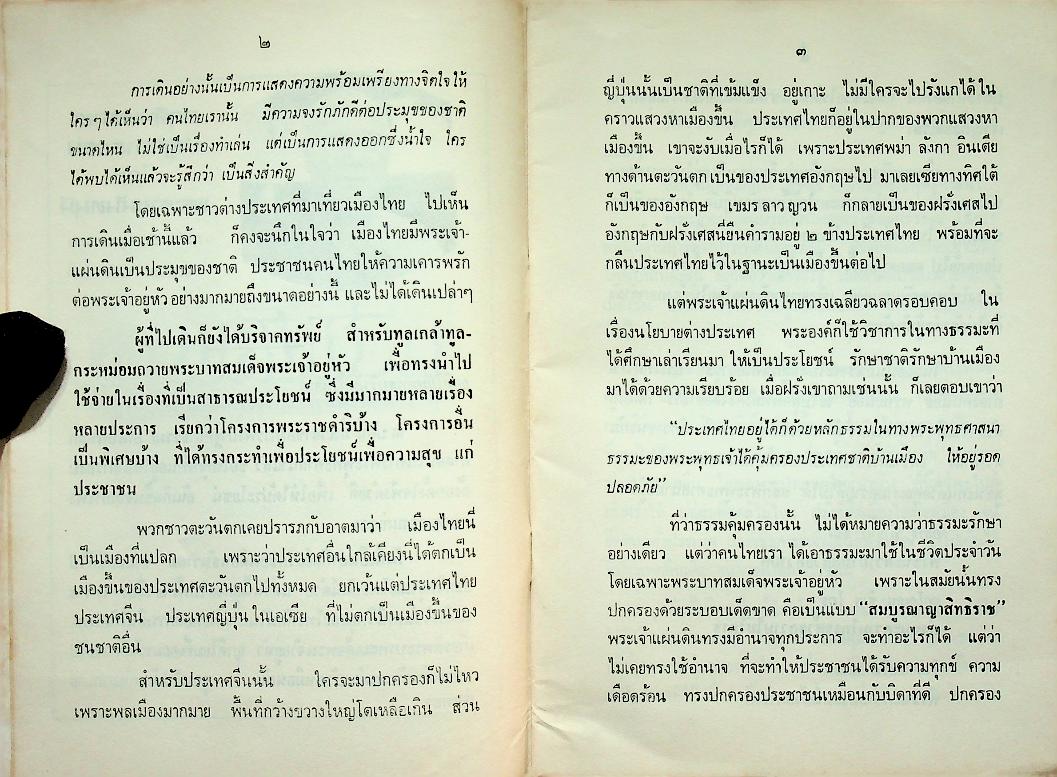 ๒
การเดินอย่างนั้นเป็นการแสดงความพร้อมเพรียงทางจิตใจ ให้
ใคร ๆ ได้เห็นว่า คนไทยเรานั้น มีความจงรักภักดีต่อประมุขของชาติ
ขนาดไหน ไม่ใช่เป็นเรื่องทำเล่น แต่เป็นการแสดงออกซึ่งน้ำใจ ใคร
ได้พบได้เห็นแล้วจะรู้สึกว่า เป็นสิ่งสำคัญ
โดยเฉพาะชาวต่างประเทศที่มาเที่ยวเมืองไทย ไปเห็น
การเดินเมื่อเช้านี้แล้ว ก็คงจะนึกในใจว่า เมืองไทยมีพระเจ้า-
แผ่นดินเป็นประมุขของชาติ ประชาชนคนไทยให้ความเคารพรัก
ต่อพระเจ้าอยู่หัว อย่างมากมายถึงขนาดอย่างนี้ และไม่ได้เดินเปล่าๆ
ผู้ที่ไปเดินก็ยังได้บริจาคทรัพย์ สำหรับทูลเกล้าทูล-
กระหม่อมถวายพระบาทสมเด็จพระเจ้าอยู่หัว เพื่อทรงนำไป
ใช้จ่ายในเรื่องที่เป็นสาธารณประโยชน์ ซึ่งมีมากมายหลายเรื่อง
หลายประการ เรียกว่าโครงการพระราชดำริบ้าง โครงการอื่น
เป็นพิเศษบ้าง ที่ได้ทรงกระทำเพื่อประโยชน์เพื่อความสุข แก่
ประชาชน
พวกชาวตะวันตกเคยปรารภกับอาตมาว่า เมืองไทยนี่
เป็นเมืองที่แปลก เพราะว่าประเทศอื่นใกล้เคียงนี่ได้ตกเป็น
เมืองขึ้นของประเทศตะวันตกไปทั้งหมด ยกเว้นแต่ประเทศไทย
ประเทศจีน ประเทศญี่ปุ่น ในเอเซีย ที่ไม่ตกเป็นเมืองขึ้นของ
ชนชาติอื่น
สำหรับประเทศจีนนั้น ใครจะมาปกครองก็ไม่ไหว
เพราะพลเมืองมากมาย พื้นที่กว้างขวางใหญ่โตเหลือเกิน ส่วน
๓
ญี่ปุ่นนั้นเป็นชาติที่เข้มแข็ง อยู่เกาะ ไม่มีใครจะไปรังแกได้ ใน
คราวแสวงหาเมืองขึ้น ประเทศไทยก็อยู่ในปากของพวกแสวงหา
เมืองขึ้น เขาจะงับเมื่อไรก็ได้ เพราะประเทศพม่า ลังกา อินเดีย
ทางด้านตะวันตก เป็นของประเทศอังกฤษไป มาเลเซียทางทิศใต้
ก็เป็นของอังกฤษ เขมร ลาว ญวน ก็กลายเป็นของฝรั่งเศสไป
อังกฤษกับฝรั่งเศสนี่ยืนคำรามอยู่ ๒ ข้างประเทศไทย พร้อมที่จะ
กลืนประเทศไทยไว้ในฐานะเป็นเมืองขึ้นต่อไป
แต่พระเจ้าแผ่นดินไทยทรงเฉลียวฉลาดรอบคอบ ใน
เรื่องนโยบายต่างประเทศ พระองค์ก็ใช้วิชาการในทางธรรมะที่
ได้ศึกษาเล่าเรียนมา ให้เป็นประโยชน์ รักษาชาติรักษาบ้านเมือง
มาได้ด้วยความเรียบร้อย เมื่อฝรั่งเขาถามเช่นนั้น ก็เลยตอบเขาว่า
"ประเทศไทยอยู่ได้ก็ด้วยหลักธรรมในทางพระพุทธศาสนา
ธรรมะของพระพุทธเจ้าได้คุ้มครองประเทศชาติบ้านเมือง ให้อยู่รอด
ปลอดภัย"
ที่ว่าธรรมคุ้มครองนั้น ไม่ได้หมายความว่าธรรมะรักษา
อย่างเดียว แต่ว่าคนไทยเรา ได้เอาธรรมะมาใช้ในชีวิตประจำวัน
โดยเฉพาะพระบาทสมเด็จพระเจ้าอยู่หัว เพราะในสมัยนั้นทรง
ปกครองด้วยระบอบเด็ดขาด คือเป็นแบบ "สมบูรณาญาสิทธิราช"
พระเจ้าแผ่นดินทรงมีอำนาจทุกประการ จะทำอะไรก็ได้ แต่ว่า
ไม่เคยทรงใช้อำนาจ ที่จะทำให้ประชาชนได้รับความทุกข์ ความ
เดือดร้อน ทรงปกครองประชาชนเหมือนกับบิดาที่ดี ปกครอง